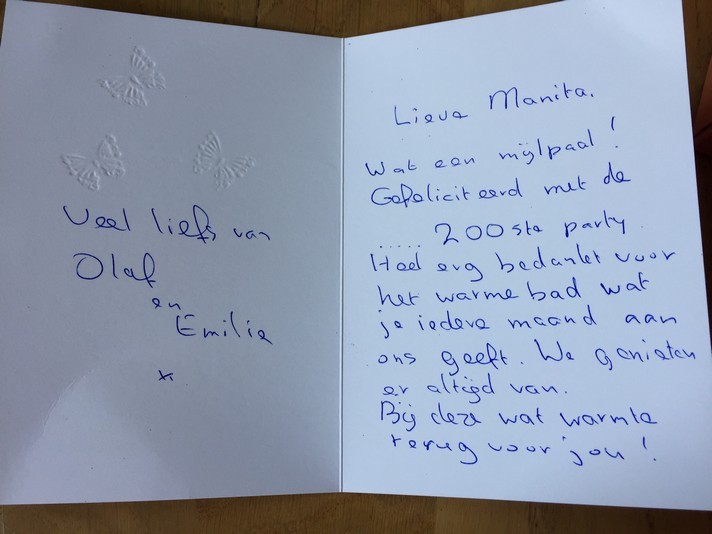 Veel liefs van
Olaf
en
Emilie
x
Lieve Manita.
Wat een mijlpaal!
Gefeliciteerd met de
..... 200ste party.
Heel erg bedankt voor
het warme bad wat
je iedere maand aan
ons geeft. We genieten
er altijd van.
Bij deze wat warmte
terug voor jou!